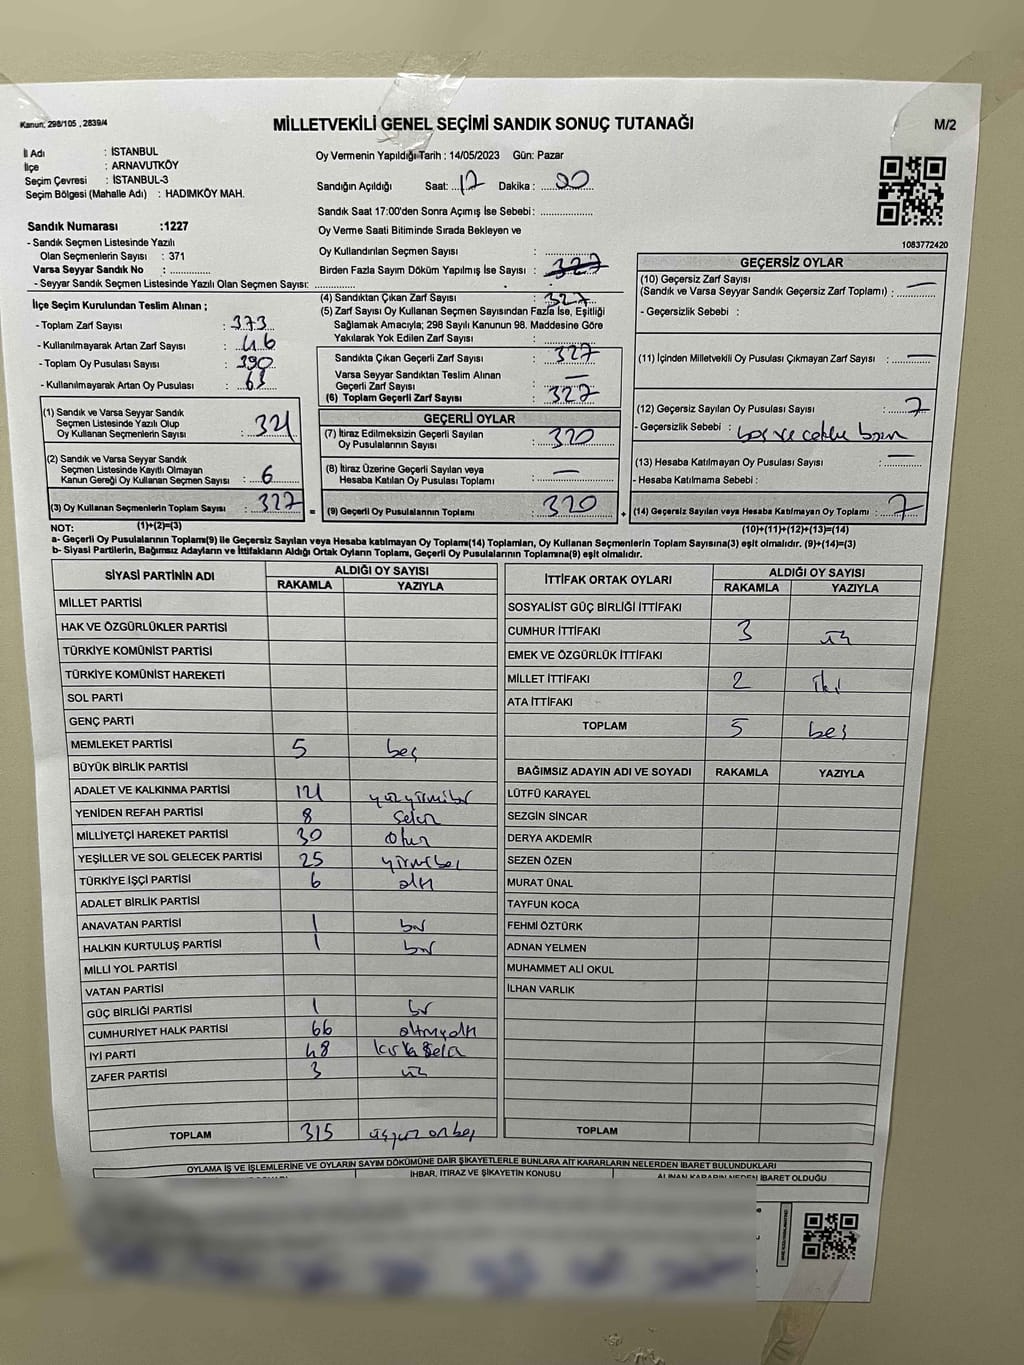 Kanun: 298/105 , 2839/4
MİLLETVEKİLİ GENEL SEÇİMİ SANDIK SONUÇ TUTANAĞI
M/2
İl Adı : İSTANBUL
İlçe : ARNAVUTKÖY
Seçim Çevresi : İSTANBUL-3
Seçim Bölgesi (Mahalle Adı) : HADIMKÖY MAH.
Oy Vermenin Yapıldığı Tarih : 14/05/2023 Gün: Pazar
Sandığın Açıldığı Saat: 17 Dakika : 00
Sandık Saat 17:00'den Sonra Açımış İse Sebebi: ..................
Sandık Numarası : 1227
- Sandık Seçmen Listesinde Yazılı
Olan Seçmenlerin Sayısı : 371
Varsa Seyyar Sandık No : ............
- Seyyar Sandık Seçmen Listesinde Yazılı Olan Seçmen Sayısı: ..............
Oy Verme Saati Bitiminde Sırada Bekleyen ve
Oy Kullandırılan Seçmen Sayısı : ..................
Birden Fazla Sayım Döküm Yapılmış İse Sayısı : 327
1083772420
İlçe Seçim Kurulundan Teslim Alınan ;
- Toplam Zarf Sayısı : 373
- Kullanılmayarak Artan Zarf Sayısı : 46
- Toplam Oy Pusulası Sayısı : 390
- Kullanılmayarak Artan Oy Pusulası : 63
(4) Sandıktan Çıkan Zarf Sayısı : 327
(5) Zarf Sayısı Oy Kullanan Seçmen Sayısından Fazla İse, Eşitliği
Sağlamak Amacıyla; 298 Sayılı Kanunun 98. Maddesine Göre
Yakılarak Yok Edilen Zarf Sayısı : ..................
Sandıkta Çıkan Geçerli Zarf Sayısı : 327
Varsa Seyyar Sandıktan Teslim Alınan
Geçerli Zarf Sayısı : —
(6) Toplam Geçerli Zarf Sayısı : 327
(1) Sandık ve Varsa Seyyar Sandık
Seçmen Listesinde Yazılı Olup
Oy Kullanan Seçmenlerin Sayısı : 321
(2) Sandık ve Varsa Seyyar Sandık
Seçmen Listesinde Kayıtlı Olmayan
Kanun Gereği Oy Kullanan Seçmen Sayısı : 6
(3) Oy Kullanan Seçmenlerin Toplam Sayısı : 327
GEÇERLİ OYLAR
(7) İtiraz Edilmeksizin Geçerli Sayılan
Oy Pusulalarının Sayısı : 320
(8) İtiraz Üzerine Geçerli Sayılan veya
Hesaba Katılan Oy Pusulası Toplamı : —
= (9) Geçerli Oy Pusulalarının Toplamı : 320
GEÇERSİZ OYLAR
(10) Geçersiz Zarf Sayısı
(Sandık ve Varsa Seyyar Sandık Geçersiz Zarf Toplamı) : —
- Geçersizlik Sebebi :
(11) İçinden Milletvekili Oy Pusulası Çıkmayan Zarf Sayısı : —
(12) Geçersiz Sayılan Oy Pusulası Sayısı : 7
- Geçersizlik Sebebi : boş ve
(13) Hesaba Katılmayan Oy Pusulası Sayısı : —
- Hesaba Katılmama Sebebi :
+ (14) Geçersiz Sayılan veya Hesaba Katılmayan Oy Toplamı : 7
NOT: (1)+(2)=(3)
(10)+(11)+(12)+(13)=(14)
a- Geçerli Oy Pusulalarının Toplamı(9) ile Geçersiz Sayılan veya Hesaba katılmayan Oy Toplamı(14) Toplamları, Oy Kullanan Seçmenlerin Toplam Sayısına(3) eşit olmalıdır. (9)+(14)=(3)
b- Siyasi Partilerin, Bağımsız Adayların ve İttifakların Aldığı Ortak Oyların Toplamı, Geçerli Oy Pusulalarının Toplamına(9) eşit olmalıdır.
SİYASİ PARTİNİN ADI ALDIĞI OY SAYISI
RAKAMLA YAZIYLA
MİLLET PARTİSİ
HAK VE ÖZGÜRLÜKLER PARTİSİ
TÜRKİYE KOMÜNİST PARTİSİ
TÜRKİYE KOMÜNİST HAREKETİ
SOL PARTİ
GENÇ PARTİ
MEMLEKET PARTİSİ 5 beş
BÜYÜK BİRLİK PARTİSİ
ADALET VE KALKINMA PARTİSİ 121 yüzyirmibir
YENİDEN REFAH PARTİSİ 8 sekiz
MİLLİYETÇİ HAREKET PARTİSİ 30 otuz
YEŞİLLER VE SOL GELECEK PARTİSİ 25 yirmibeş
TÜRKİYE İŞÇİ PARTİSİ 6 altı
ADALET BİRLİK PARTİSİ
ANAVATAN PARTİSİ 1 bir
HALKIN KURTULUŞ PARTİSİ 1 bir
MİLLİ YOL PARTİSİ
VATAN PARTİSİ
GÜÇ BİRLİĞİ PARTİSİ 1 bir
CUMHURİYET HALK PARTİSİ 66 altmışaltı
İYİ PARTİ 48 kırksekiz
ZAFER PARTİSİ 3 üç
TOPLAM 315 üçyüz onbeş
İTTİFAK ORTAK OYLARI ALDIĞI OY SAYISI
RAKAMLA YAZIYLA
SOSYALİST GÜÇ BİRLİĞİ İTTİFAKI
CUMHUR İTTİFAKI 3 üç
EMEK VE ÖZGÜRLÜK İTTİFAKI
MİLLET İTTİFAKI 2 iki
ATA İTTİFAKI
TOPLAM 5 beş
BAĞIMSIZ ADAYIN ADI VE SOYADI RAKAMLA YAZIYLA
LÜTFÜ KARAYEL
SEZGİN SİNCAR
DERYA AKDEMİR
SEZEN ÖZEN
MURAT ÜNAL
TAYFUN KOCA
FEHMİ ÖZTÜRK
ADNAN YELMEN
MUHAMMET ALİ OKUL
İLHAN VARLIK
TOPLAM
OYLAMA İŞ VE İŞLEMLERİNE VE OYLARIN SAYIM DÖKÜMÜNE DAİR ŞİKAYETLERLE BUNLARA AİT KARARLARIN NELERDEN İBARET BULUNDUKLARI
İHBAR, İTİRAZ VE ŞİKAYETİN KONUSU
ALINAN KARARIN NEDEN İBARET OLDUĞU